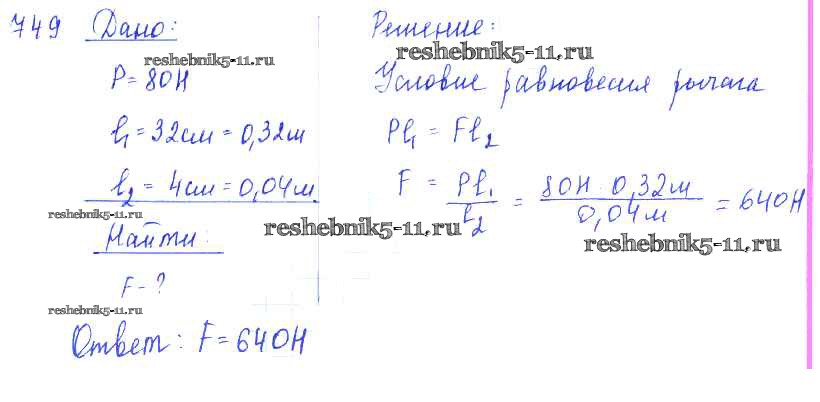 749 Дано:
reshebnik5-11.ru
P = 80Н
l₁ = 32см = 0,32м
l₂ = 4см = 0,04м
reshebnik5-11.ru
Найти:
F - ?
reshebnik5-11.ru
Решение:
reshebnik5-11.ru
Условие равновесия рычага
Pl₁ = Fl₂
F = Pl₁/l₂ = 80Н · 0,32м/0,04м = 640Н
reshebnik5-11.ru
reshebnik5-11.ru
Ответ: F = 640Н